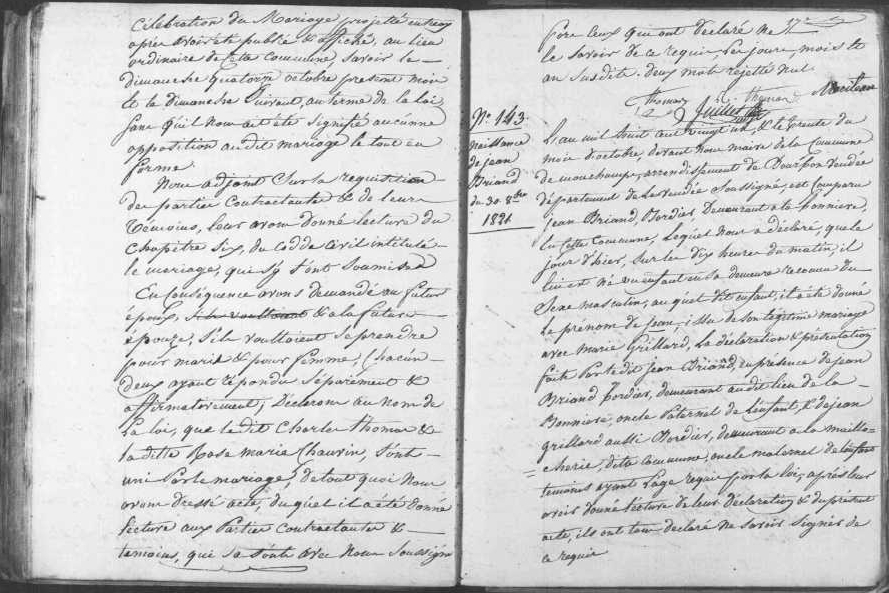 Célébration du Mariage projetté entreux
après avoir été publié & affiché, au lieu
ordinaire de cette commune, savoir le
dimanche quatorze octobre present mois
et la dimanche suivant, au terme de la loi,
sans quil nous ait été signifié aucunne
opposition audit mariage le tout en
forme
Nous adjoint sur la requisition
des parties contractante & de leurs
témoins, leur avons donné lecture du
chapitre six, du codde civil intitulé
le mariage, qui sy sont soumise
En conséquence avons demandé au futur
époux, & a la future
épouze, sils voulloient se prendre
pour marit & pour femme, chacun
deux ayant répondu séparément &
affirmativement, déclarons au nom de
la loi, que ledit Charles Thomas &
la ditte Rose marie Chauvin, sont
uni par le mariage, de tout quoi nous
avons dressé acte, duquel il a été donné
lecture aux parties contractantes &
temoins, qui se sont avec nous soussigné
fors ceux qui ont déclaré ne
le savoir de ce requis, les jours, mois et
an susdits. deux mots rejetté nul.
Thomas Juillet Thomas
N.o 143.
naissance
de jean
Briand
du 30 8bre
1821
L'an mil huit cent vingt un, & le trente du
mois d'octobre, devant nous maire de la commune
de mouchamps, arrondissement de Bourbon vendée
département de la vendée soussigné, est comparu
jean Briand, Bordier demeurant a la bonniere,
en cette commune, lequel nous a déclaré, que le
jour d'hier, sur les dix heures du matin, il
lui est né un enfant en sa demeure reconnu du
sexe masculin, auquel dit enfant, il a été donné
le prenom de jean, issu de son légitime mariage
avec marie Grillard, la déclaration & présentation
faite par ledit jean Briand, en présence de jean
Briand bordier, demeurant audit lieu de la
Bonniere, oncle paternel de l'enfant, & de jean
grillard aussi Bordier, demeurant a la
cherie, ditte commune, oncle maternel de l'enfant
temoins ayant l'age requis par la loi, après leur
avoir donné lecture de leur déclaration & du présent
acte, ils ont tous déclaré ne savoir signer de
ce requis